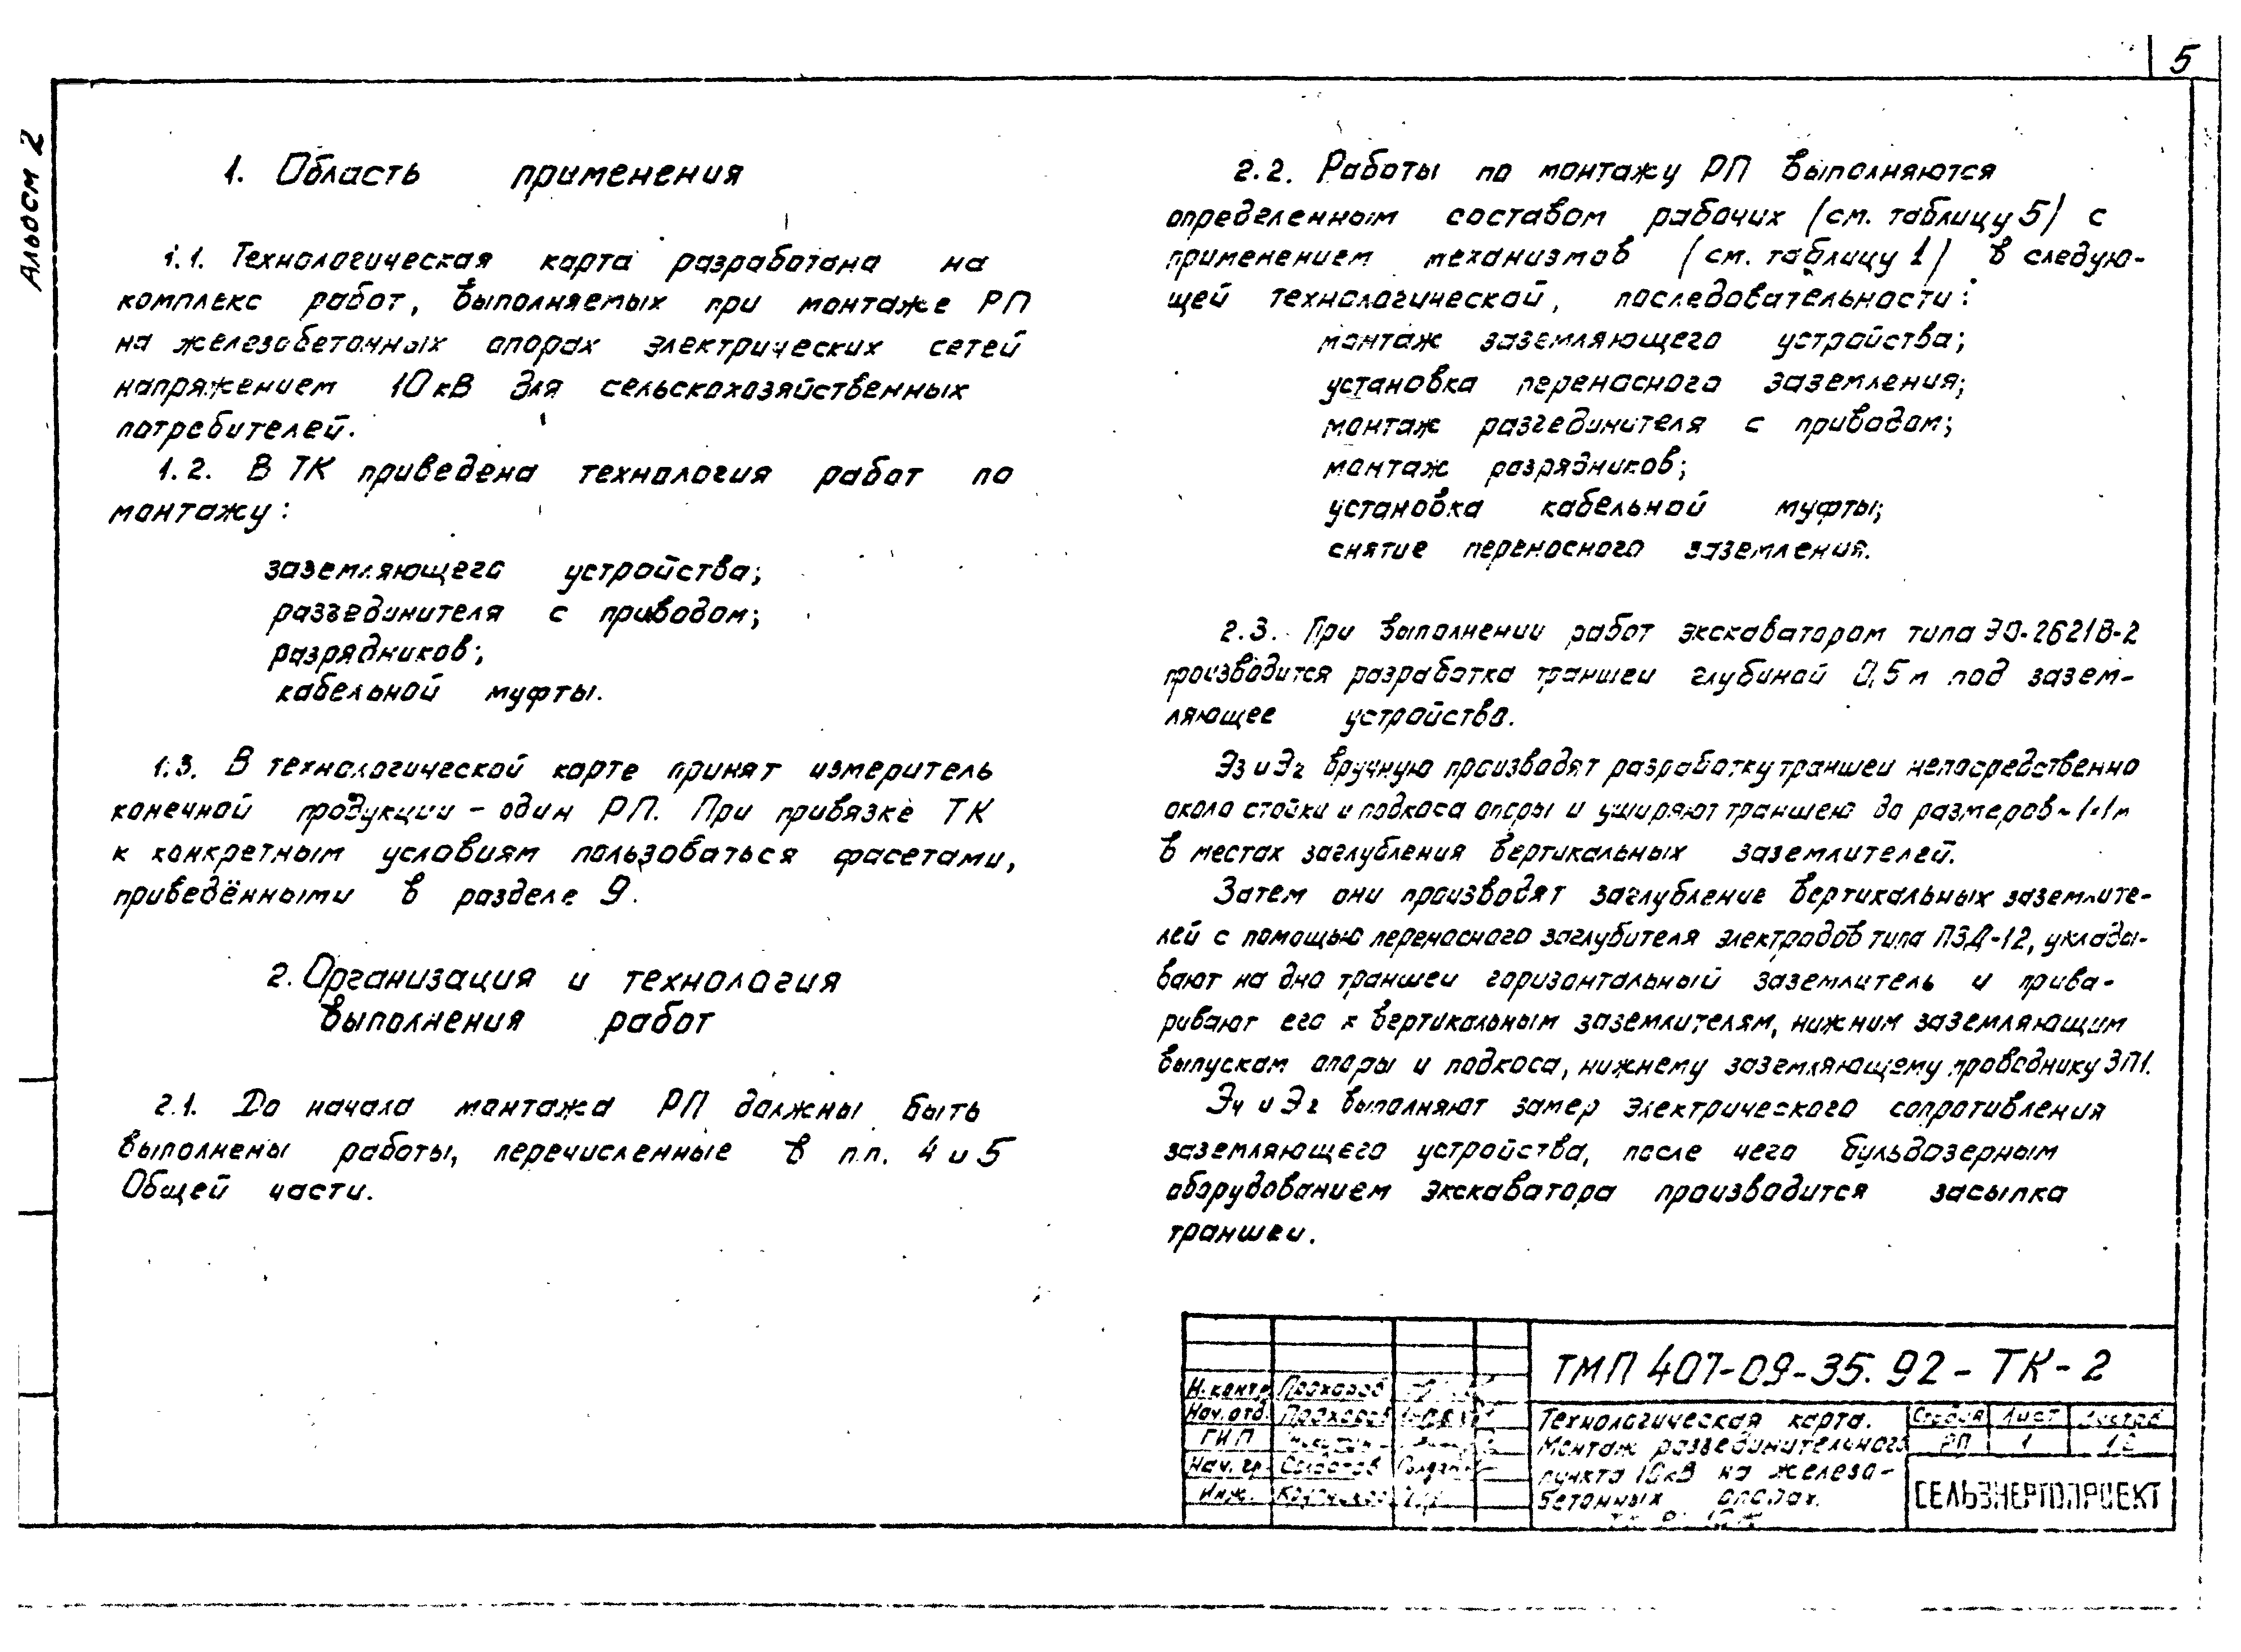 5
Альбом 2
1. Область применения
1.1. Технологическая карта разработана на
комплекс работ, выполняемых при монтаже РП
на железобетонных опорах электрических сетей
напряжением 10кВ для сельскохозяйственных
потребителей.
1.2. В ТК приведена технология работ по
монтажу:
заземляющего устройства;
разъединителя с приводом;
разрядников;
кабельной муфты.
1.3. В технологической карте принят измеритель
конечной продукции - один РП. При привязке ТК
к конкретным условиям пользоваться фасетами,
приведёнными в разделе 9.
2. Организация и технология
выполнения работ
2.1. До начала монтажа РП должны быть
выполнены работы, перечисленные в п.п. 4 и 5
Общей части.
2.2. Работы по монтажу РП выполняются
определенным составом рабочих (см. таблицу 5) с
применением механизмов (см. таблицу 1) в следую-
щей технологической, последовательности:
монтаж заземляющего устройства;
установка переносного заземления;
монтаж разъединителя с приводом;
монтаж разрядников;
установка кабельной муфты;
снятие переносного заземления.
2.3. При выполнении работ экскаватором типа ЭО-2621В-2
производится разработка траншеи глубиной 0,5 м под зазем-
ляющее устройство.
Э3 и Э2 вручную производят разработку траншеи непосредственно
около стойки и подкоса опоры и уширяют траншею до размеров ~ 1×1м
в местах заглубления вертикальных заземлителей.
Затем они производят заглубление вертикальных заземлите-
лей с помощью переносного заглубителя электродов типа ПЗД-12, уклады-
вают на дно траншеи горизонтальный заземлитель и прива-
ривают его к вертикальным заземлителям, нижним заземляющим
выпускам опоры и подкоса, нижнему заземляющему проводнику ЗП1.
Э4 и Э2 выполняют замер электрического сопротивления
заземляющего устройства, после чего бульдозерным
оборудованием экскаватора производится засыпка
траншеи.
ТМП 407-09-35.92-ТК-2
Н.контр Прохоров
Нач.отд. Прохоров
ГИП
Нач. гр. Солдатов
Инж.
Технологическая карта.
Монтаж разъединительного
пункта 10кВ на железо-
бетонных опорах.
Стадия Лист Листов
РП 1
СЕЛЬЭНЕРГОПРОЕКТ